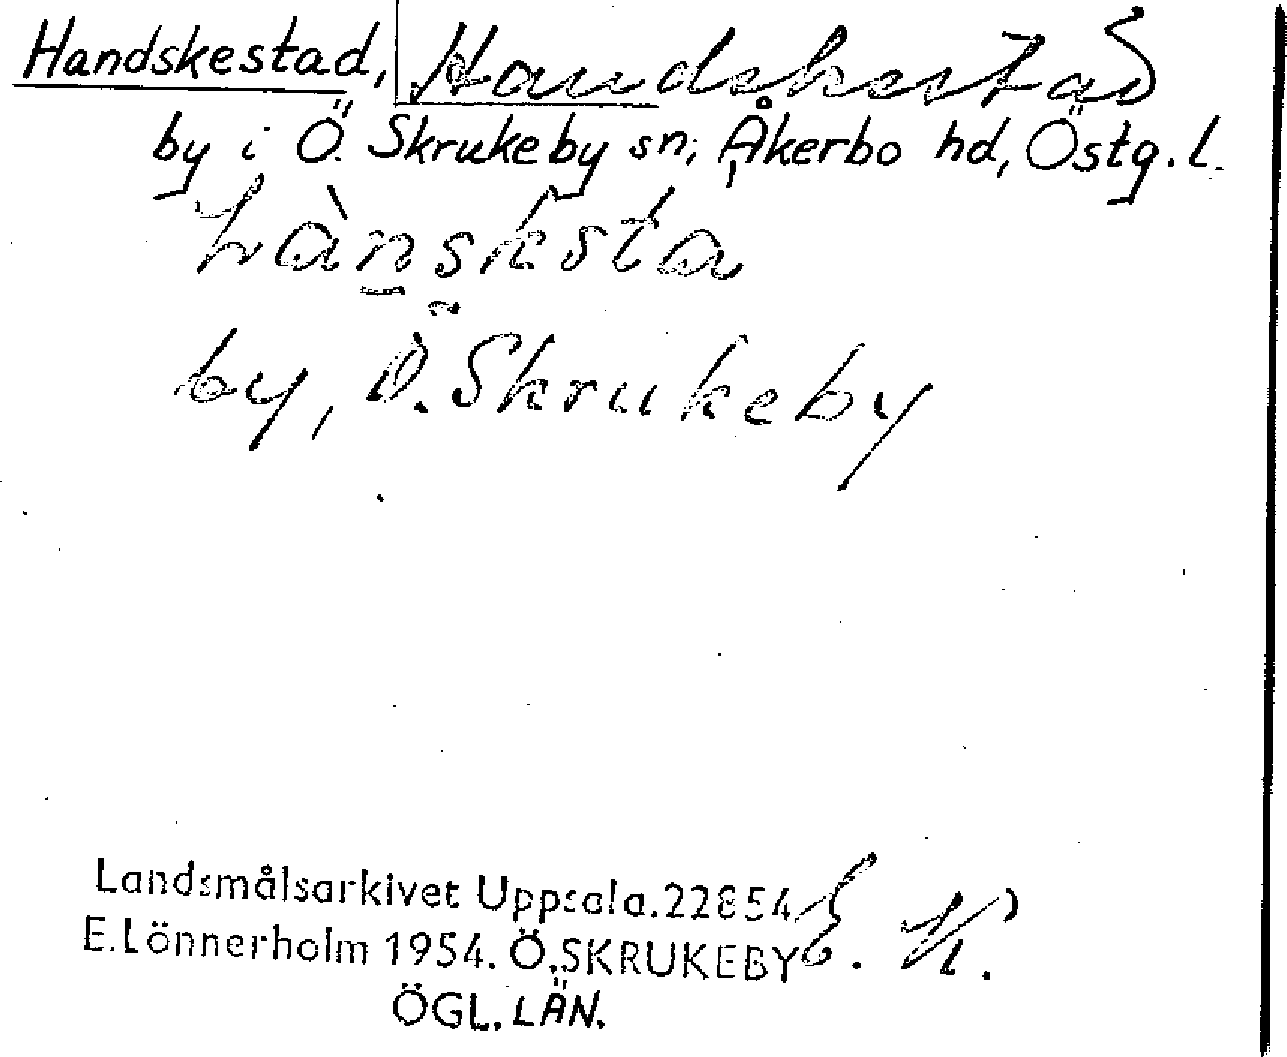 Handskestad, Handskestad
by i Ö. Skrukeby sn, Åkerbo hd, Östg. l.
hànsksta
by, Ö. Skrukeby
Landsmålsarkivet Uppsala. 22854
E. Lönnerholm 1954. Ö. SKRUKEBY
ÖGL. LÄN.